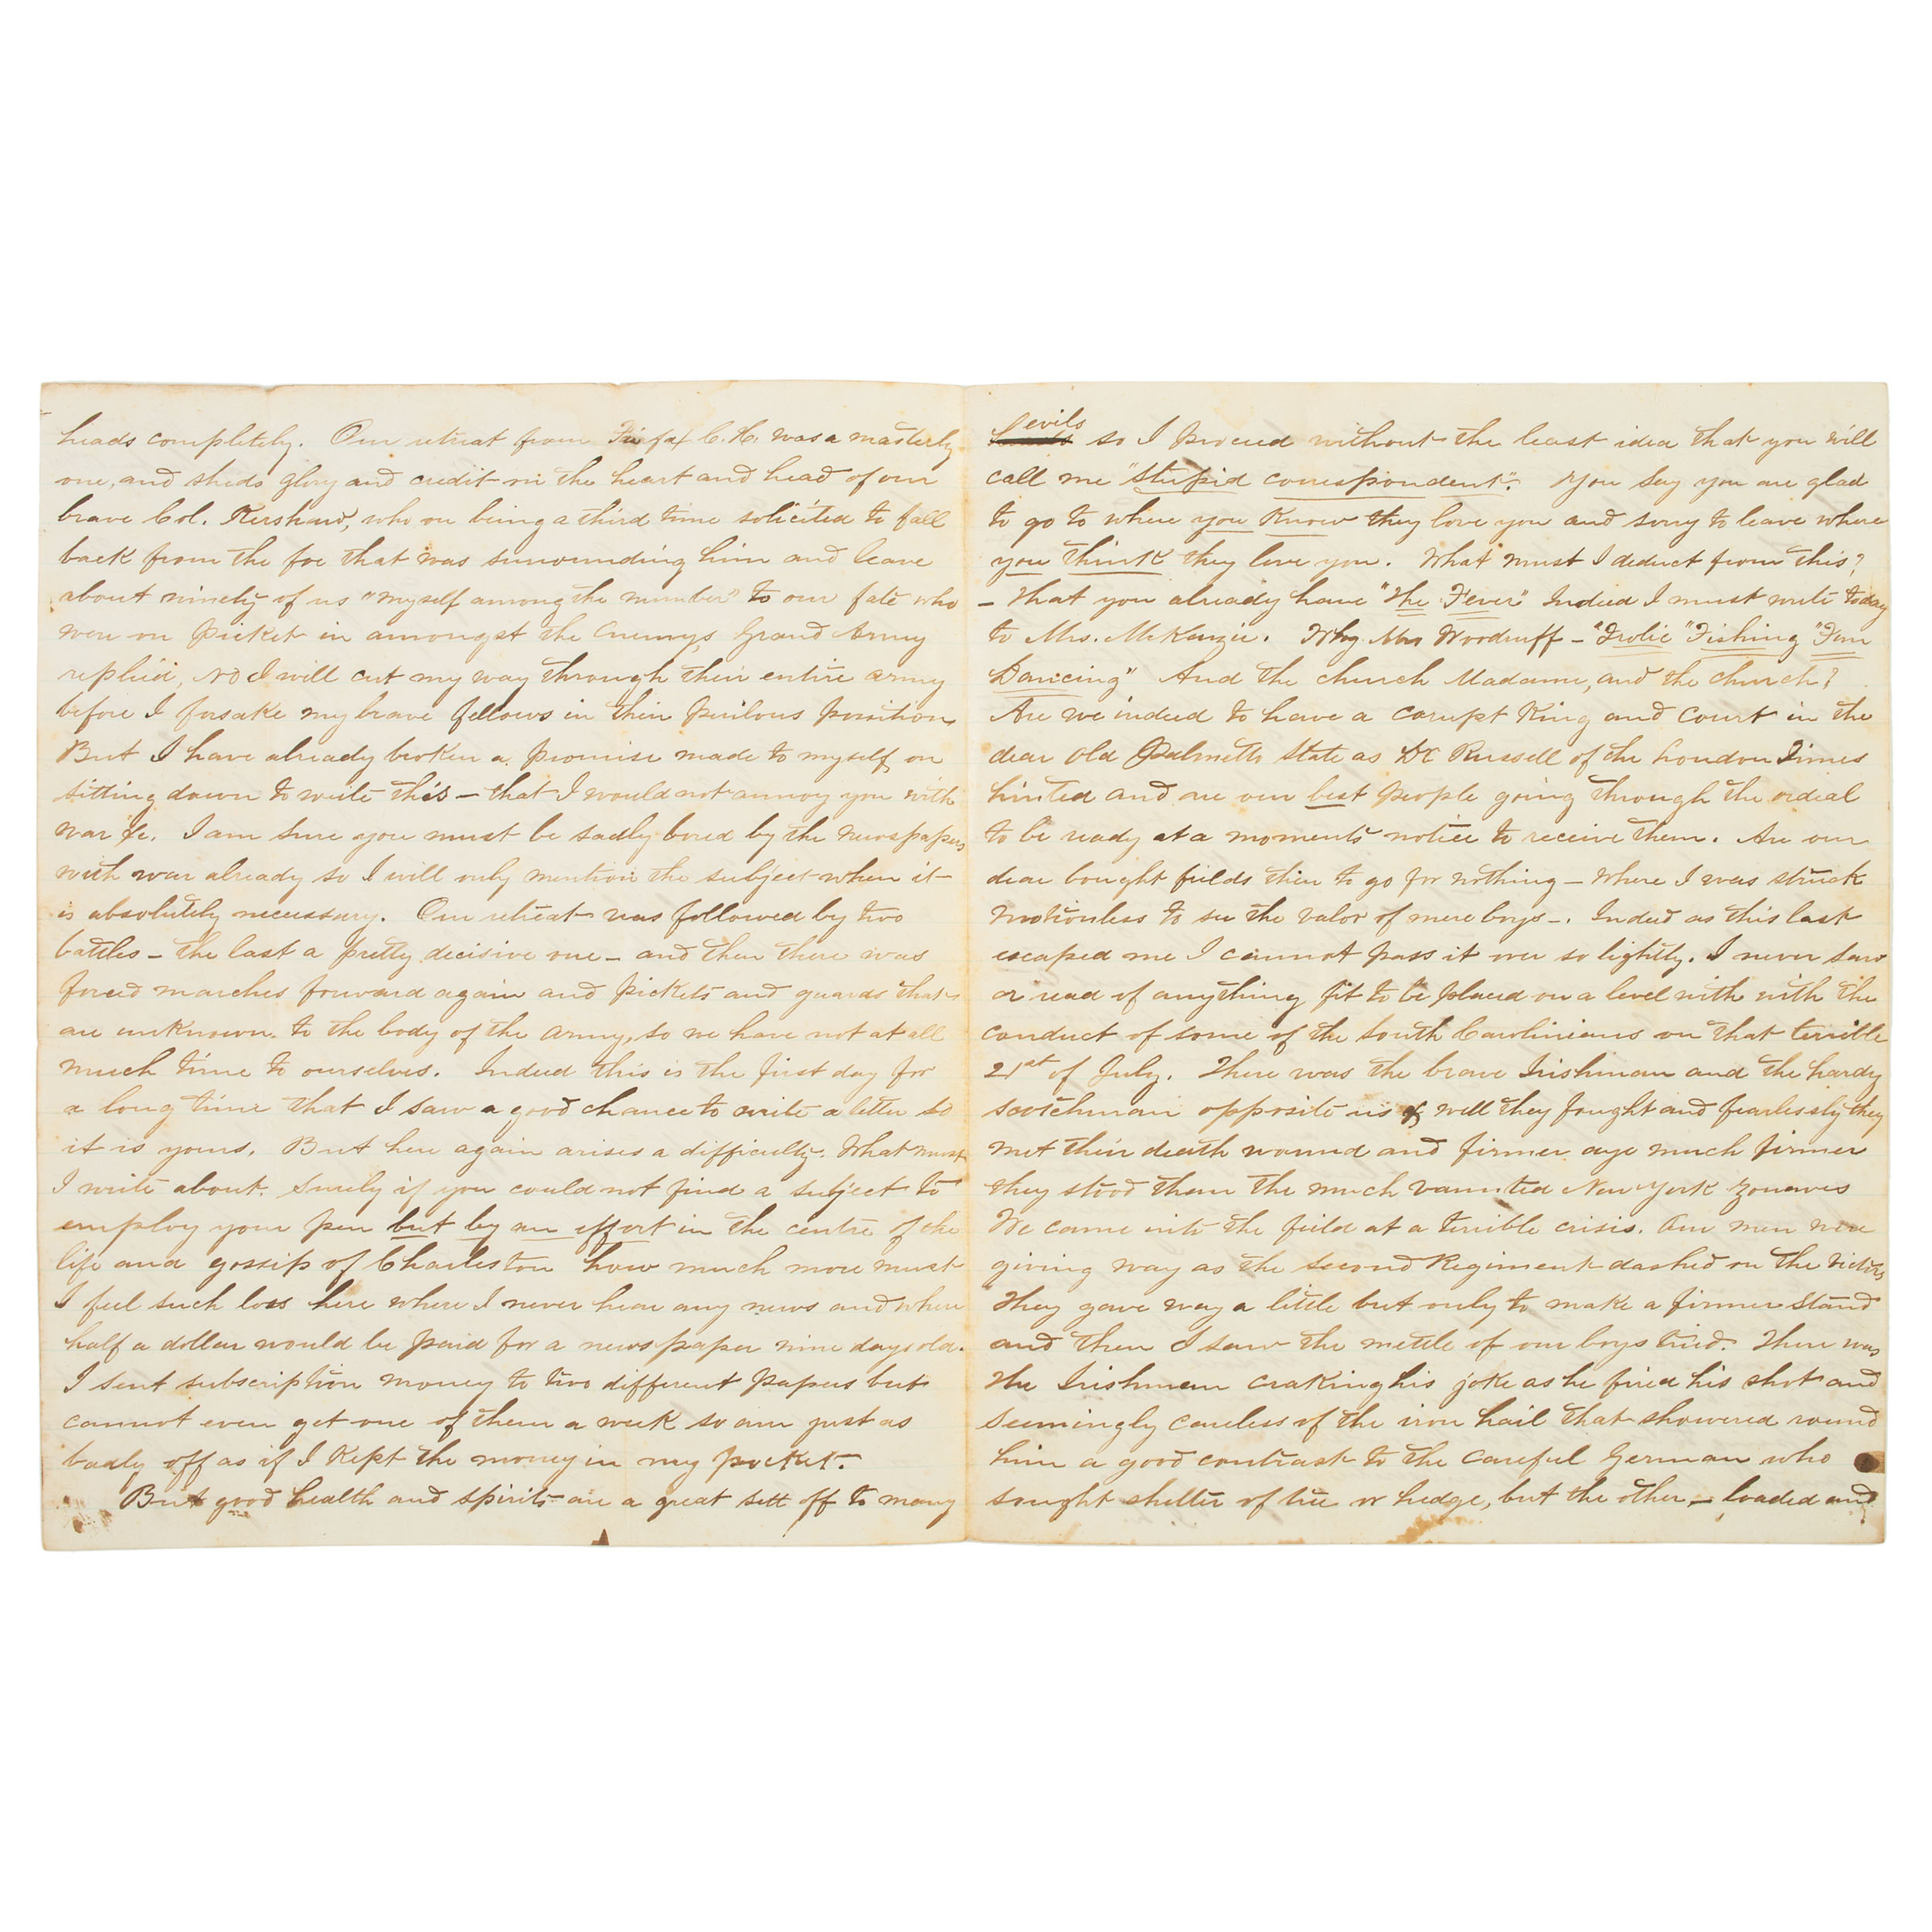 heads completely. Our retreat from Fairfax C.H. was a masterly
one, and sheds glory and credit on the heart and head of our
brave Col. Kershaw, who on being a third time solicited to fall
back from the foe that was surrounding him and leave
about ninety of us "myself among the number" to our fate who
were on picket in amongst the Enemys Grand Army
replied, No I will cut my way through their entire army
before I forsake my brave fellows in their perilous position
But I have already broken a promise made to myself on
sitting down to write this – that I would not annoy you with
war &c. I am sure you must be sadly bored by the newspapers
with war already so I will only mention the subject when it
is absolutely necessary. Our retreat was followed by two
battles – the last a pretty decisive one – and then there was
forced marches forward again and pickets and guards that
are unknown to the body of the army, so we have not at all
much time to ourselves. Indeed this is the first day for
a long time that I saw a good chance to write a letter so
it is yours. But here again arises a difficulty. What must
I write about. Surely if you could not find a subject to
employ your pen but by an effort in the centre of the
life and gossip of Charleston how much more must
I feel such loss here where I never hear any news and where
half a dollar would be paid for a newspaper nine days old.
I sent subscription money to two different papers but
cannot even get one of them a week so am just as
badly off as if I kept the money in my pocket.
But good health and spirits are a great sett off to many
devils so I proceed without the least idea that you will
call me "stupid correspondent". You say you are glad
to go to where you know they love you and sorry to leave where
you think they love you. What must I deduct from this?
– That you already have "The Fever" Indeed I must write today
to Mrs. McKenzie. Why Mrs Woodruff – "Frolic "Fishing "Fun
Dancing" And the church Madame, and the church?
Are we indeed to have a corupt King and Court in the
dear old Palmetto State as Dr Russell of the London Times
hinted and are our best people going through the ordeal
to be ready at a moments notice to receive them. Are our
dear bought fields then to go for nothing – Where I was struck
motionless to see the valor of mere boys –. Indeed as this last
escaped me I cannot pass it over so lightly. I never saw
or read of anything fit to be placed on a level with with the
conduct of some of the South Carolinians on that terrible
21st of July. There was the brave Irishman and the hardy
scotchman opposite us & well they fought and fearlessly they
met their death wound and firmer aye much firmer
they stood than the much vaunted New York Zouaves
We came into the field at a terrible crisis. Our men were
giving way as the second Regiment dashed on the victors
They gave way a little but only to make a firmer stand
and then I saw the mettle of our boys tried. There was
the Irishman craking his joke as he fired his shot and
seemingly careless of the iron hail that showered round
him a good contrast to the careful German who
sought shelter of tree or hedge, but the other – loaded and